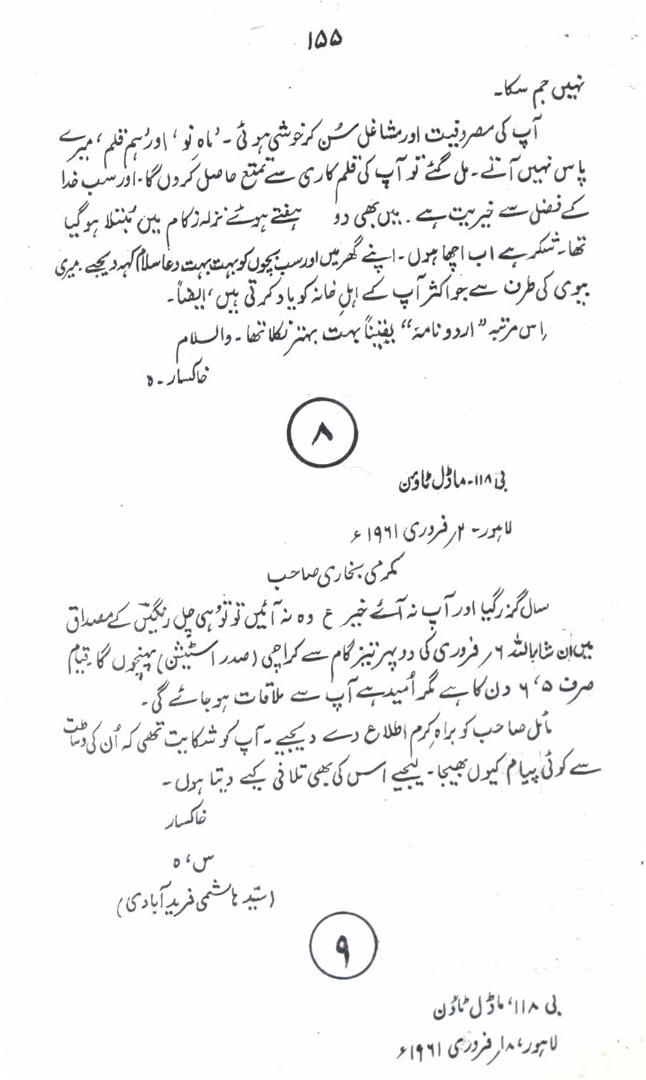 ۱۵۵
نہیں جم سکا۔
آپ کی مصروفیت اور مشاغل سُن کر خوشی ہوئی۔ ’ماہِ نو‘ اور ’ہم قلم‘ میرے
پاس نہیں آتے۔ مل گئے تو آپ کی قلم کاری سے تمتع حاصل کر دوں گا۔ اور سب خدا
کے فضل سے خیریت ہے۔ میں بھی دو ہفتے ہوئے نزلہ زکام میں مُبتلا ہو گیا
تھا۔ شکر ہے اب اچھا ہوں۔ اپنے گھر میں اور سب بچوں کو بہت بہت دعا سلام کہہ دیجیے۔ میری
بیوی کی طرف سے جو اکثر آپ کے اہلِ خانہ کو یاد کرتی ہیں، ایضاً۔
اس مرتبہ ”اردو نامہ“ یقیناً بہت بہتر نکلا تھا۔ والسلام
خاکسار۔ ہ
۸
بی ۱۱۸۔ ماڈل ٹاؤن
لاہور۔ ۲؍ فروری ۱۹۶۱ء
مکرمی بخاری صاحب
سال گزر گیا اور آپ نہ آئے خیر ع وہ نہ آئیں تو تُو ہی چل رنگیںؔ کے مصداق
میں ان شاءاللہ ۶؍ فروری کی دوپہر تیز گام سے کراچی (صدر اسٹیشن) پہنچوں گا قیام
صرف ۵، ۶ دن کا ہے مگر اُمید ہے آپ سے ملاقات ہو جائے گی۔
مائل صاحب کو براہِ کرم اطلاع دے دیجیے۔ آپ کو شکایت تھی کہ اُن کی وساطت
سے کوئی پیام کیوں بھیجا۔ لیجیے اس کی بھی تلافی کیے دیتا ہوں۔
خاکسار
س، ہ
(سیّد ہاشمی فریدآبادی)
۹
بی ۱۱۸، ماڈل ٹاؤن
لاہور، ۱۸؍ فروری ۱۹۶۱ء